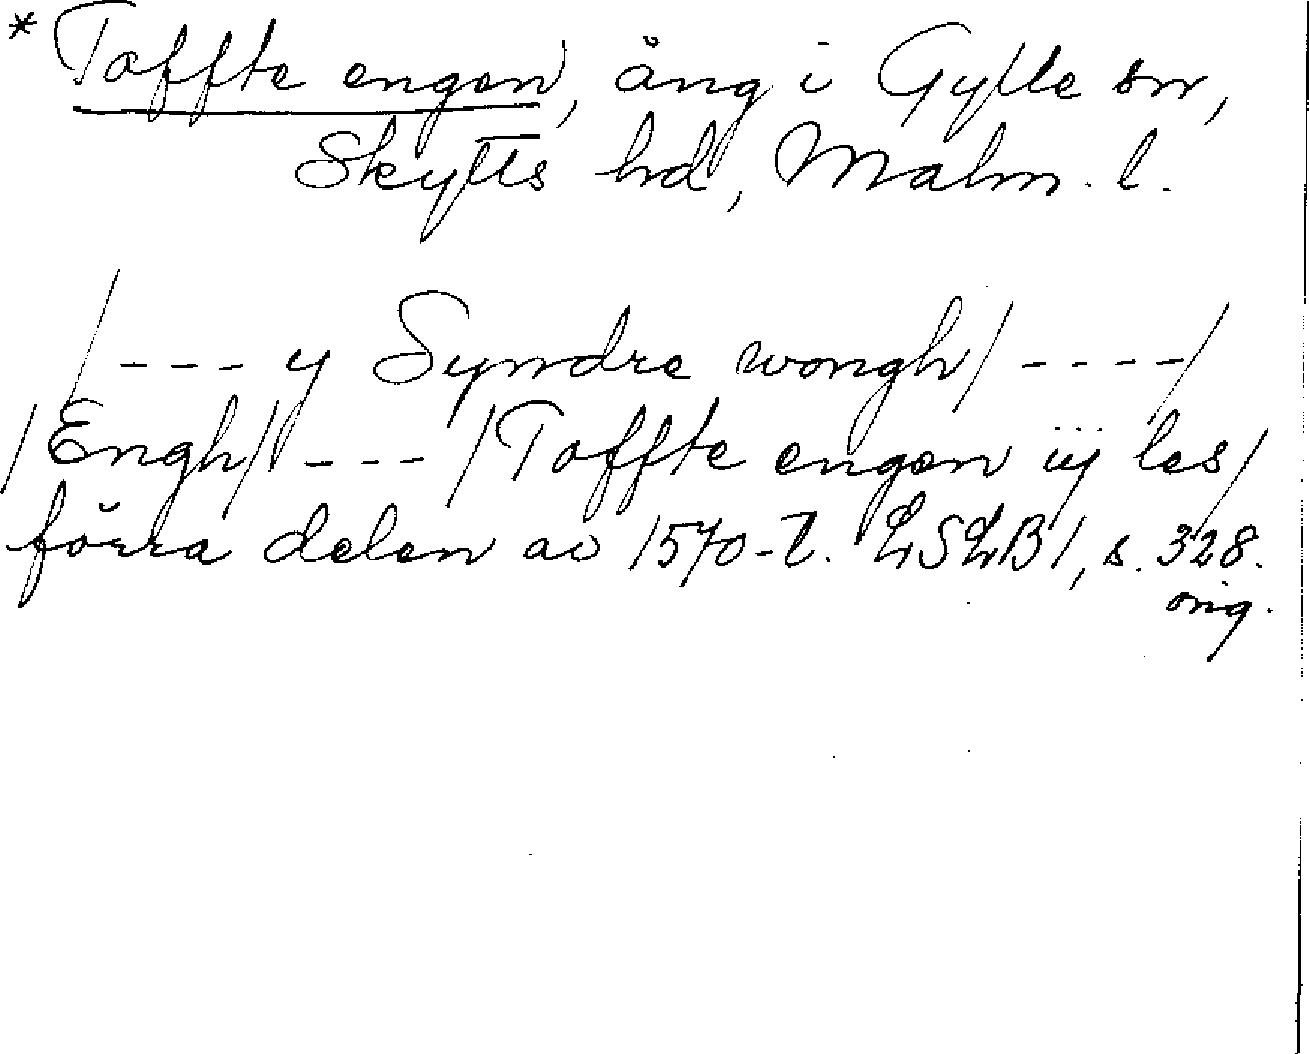 * Toffte engen, äng i Gylle sn,
Skytts hd, Malm. l.
/---- y Syndre wongh/----/
/Engh/ ---- /Toffte engen iij les/
förra delen av 1570-t. LSLB1, s. 328.
orig.